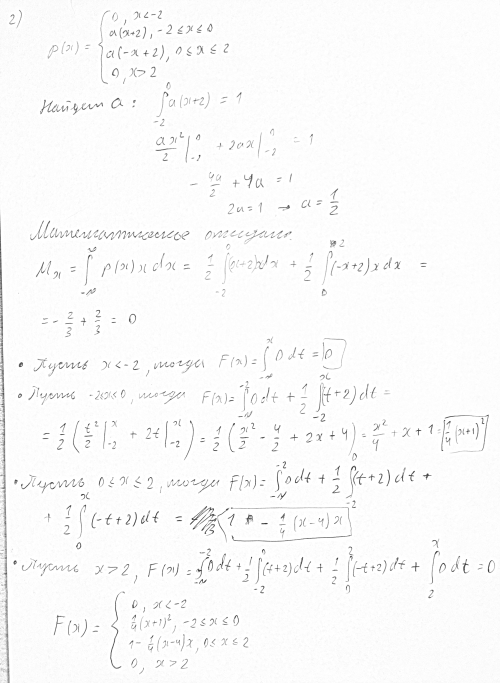 2)
p(x) = { 0, x<-2
a(x+2), -2≤x≤0
a(-x+2), 0≤x≤2
0, x>2
Найдем a: ∫_{-2}^{0} a(x+2) = 1
ax²/2 |_{-2}^{0} + 2ax |_{-2}^{0} = 1
- 4a/2 + 4a = 1
2a = 1 → a = 1/2
Математическое ожидание
M_x = ∫_{-∞}^{∞} p(x) x dx = 1/2 ∫_{-2}^{0} (x+2)x dx + 1/2 ∫_{0}^{2} (-x+2) x dx =
= - 2/3 + 2/3 = 0
• Пусть x<-2, тогда F(x) = ∫_{-∞}^{x} 0 dt = 0
• Пусть -2≤x≤0, тогда F(x) = ∫_{-∞}^{-2} 0 dt + 1/2 ∫_{-2}^{x} (t+2) dt =
= 1/2 ( t²/2 |_{-2}^{x} + 2t |_{-2}^{x} ) = 1/2 ( x²/2 - 4/2 + 2x + 4 ) = x²/4 + x + 1 = 1/4 (x+1)²
• Пусть 0≤x≤2, тогда F(x) = ∫_{-∞}^{-2} 0 dt + 1/2 ∫_{-2}^{0} (t+2) dt +
+ 1/2 ∫_{0}^{x} (-t+2) dt = 1 - 1/4 (x-4) x
• Пусть x>2, F(x) = ∫_{-∞}^{-2} 0 dt + 1/2 ∫_{-2}^{0} (t+2) dt + 1/2 ∫_{0}^{2} (-t+2) dt + ∫_{2}^{x} 0 dt = 0
F(x) = { 0, x<-2
1/4 (x+1)², -2≤x≤0
1 - 1/4 (x-4)x, 0≤x≤2
0, x>2